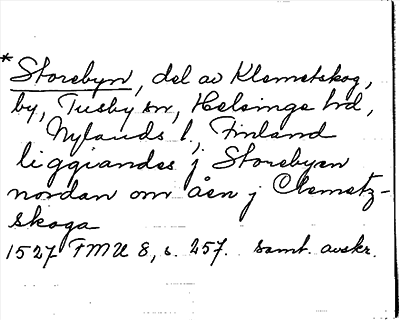 * Storebyn, del av Klemetskog,
by, Tusby sn, Helsinge hd,
Nylands l. Finland
liggiandes j Storebyen
nordan om åen j Clemetz-
skoga
1527 FMU 8, s. 257. samt. avskr.